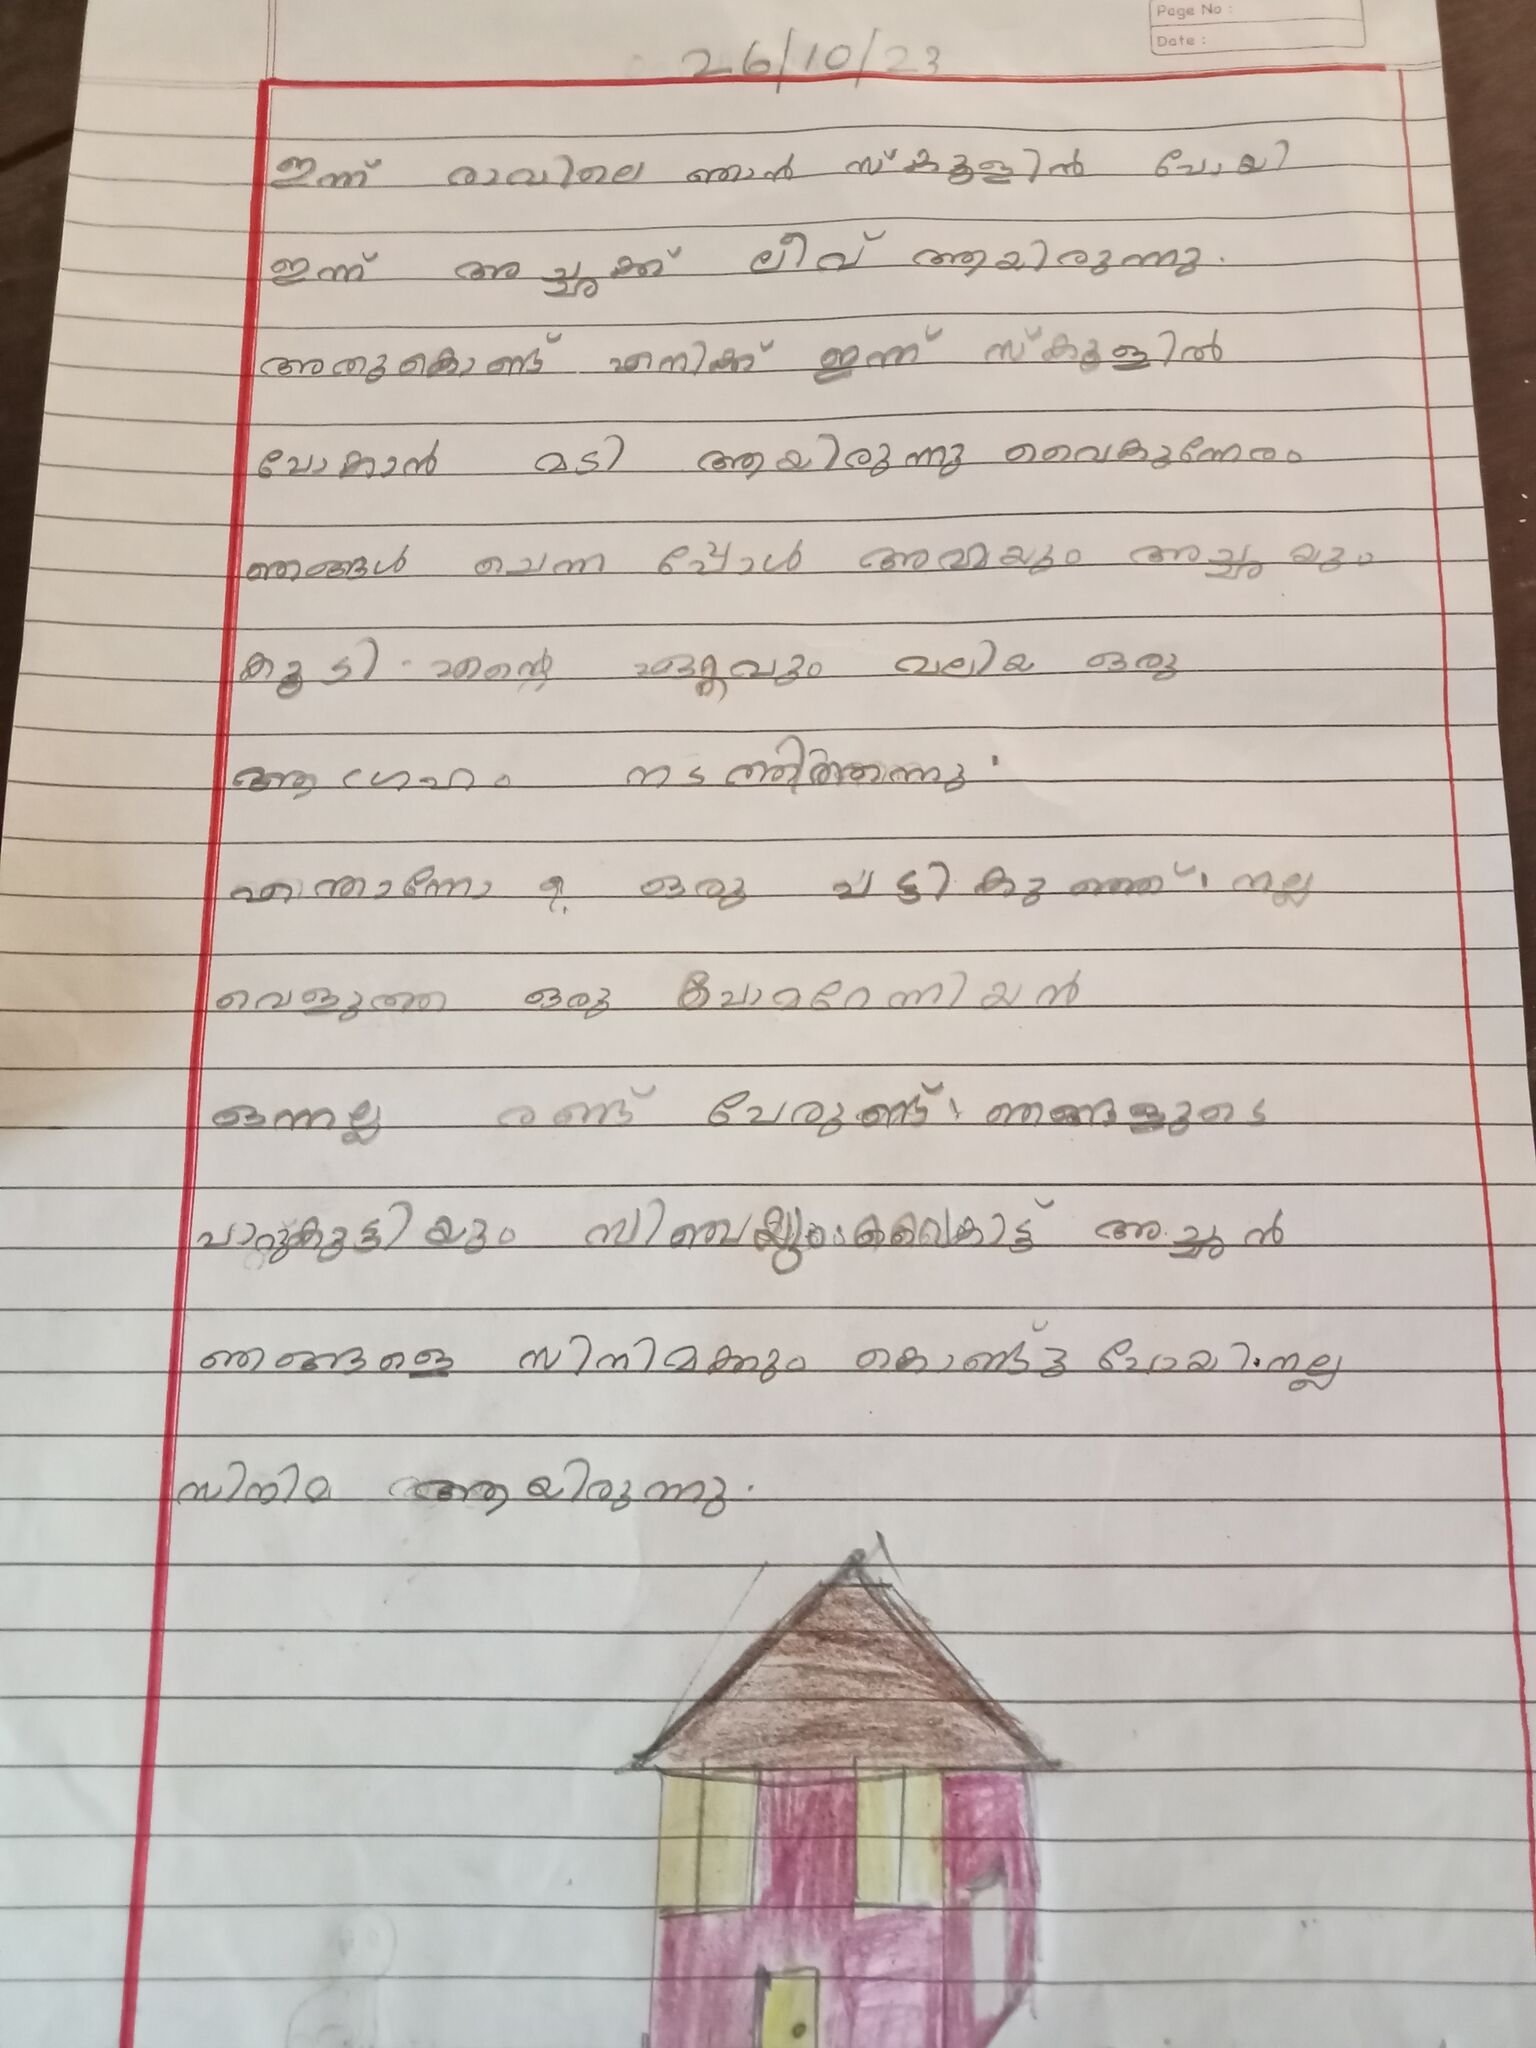 Page No :
Date :
26/10/23
ഇന്ന് രാവിലെ ഞാൻ സ്കൂളിൻ പോയി
ഇന്ന് അച്ചക്ക് ലീവ് ആയിരുന്നു.
അതുകൊണ്ട് എനിക്ക് ഇന്ന് സ്കൂളിൽ
പോകാൻ മടി ആയിരുന്നു വൈകുന്നേരം
ഞങ്ങൾ ചെന്ന പ്പോൾ അമ്മയും അച്ചയും
കൂടി എന്റെ ഏറ്റവും വലിയ ഒരു
ആഗ്രഹം നടത്തിത്തന്നു.
എന്താന്നോ ? ഒരു പട്ടി കുഞ്ഞ്. നല്ല
വെളുത്ത ഒരു പോമറേനിയൻ
ഒന്നല്ല രണ്ട് പേരുണ്ട്. ഞങ്ങളുടെ
പാറുകുട്ടിയും വൈകിട്ട് അച്ചൻ
ഞങ്ങളെ സിനിമക്കും കൊണ്ടു പോയി. നല്ല
സിനിമ ആയിരുന്നു.